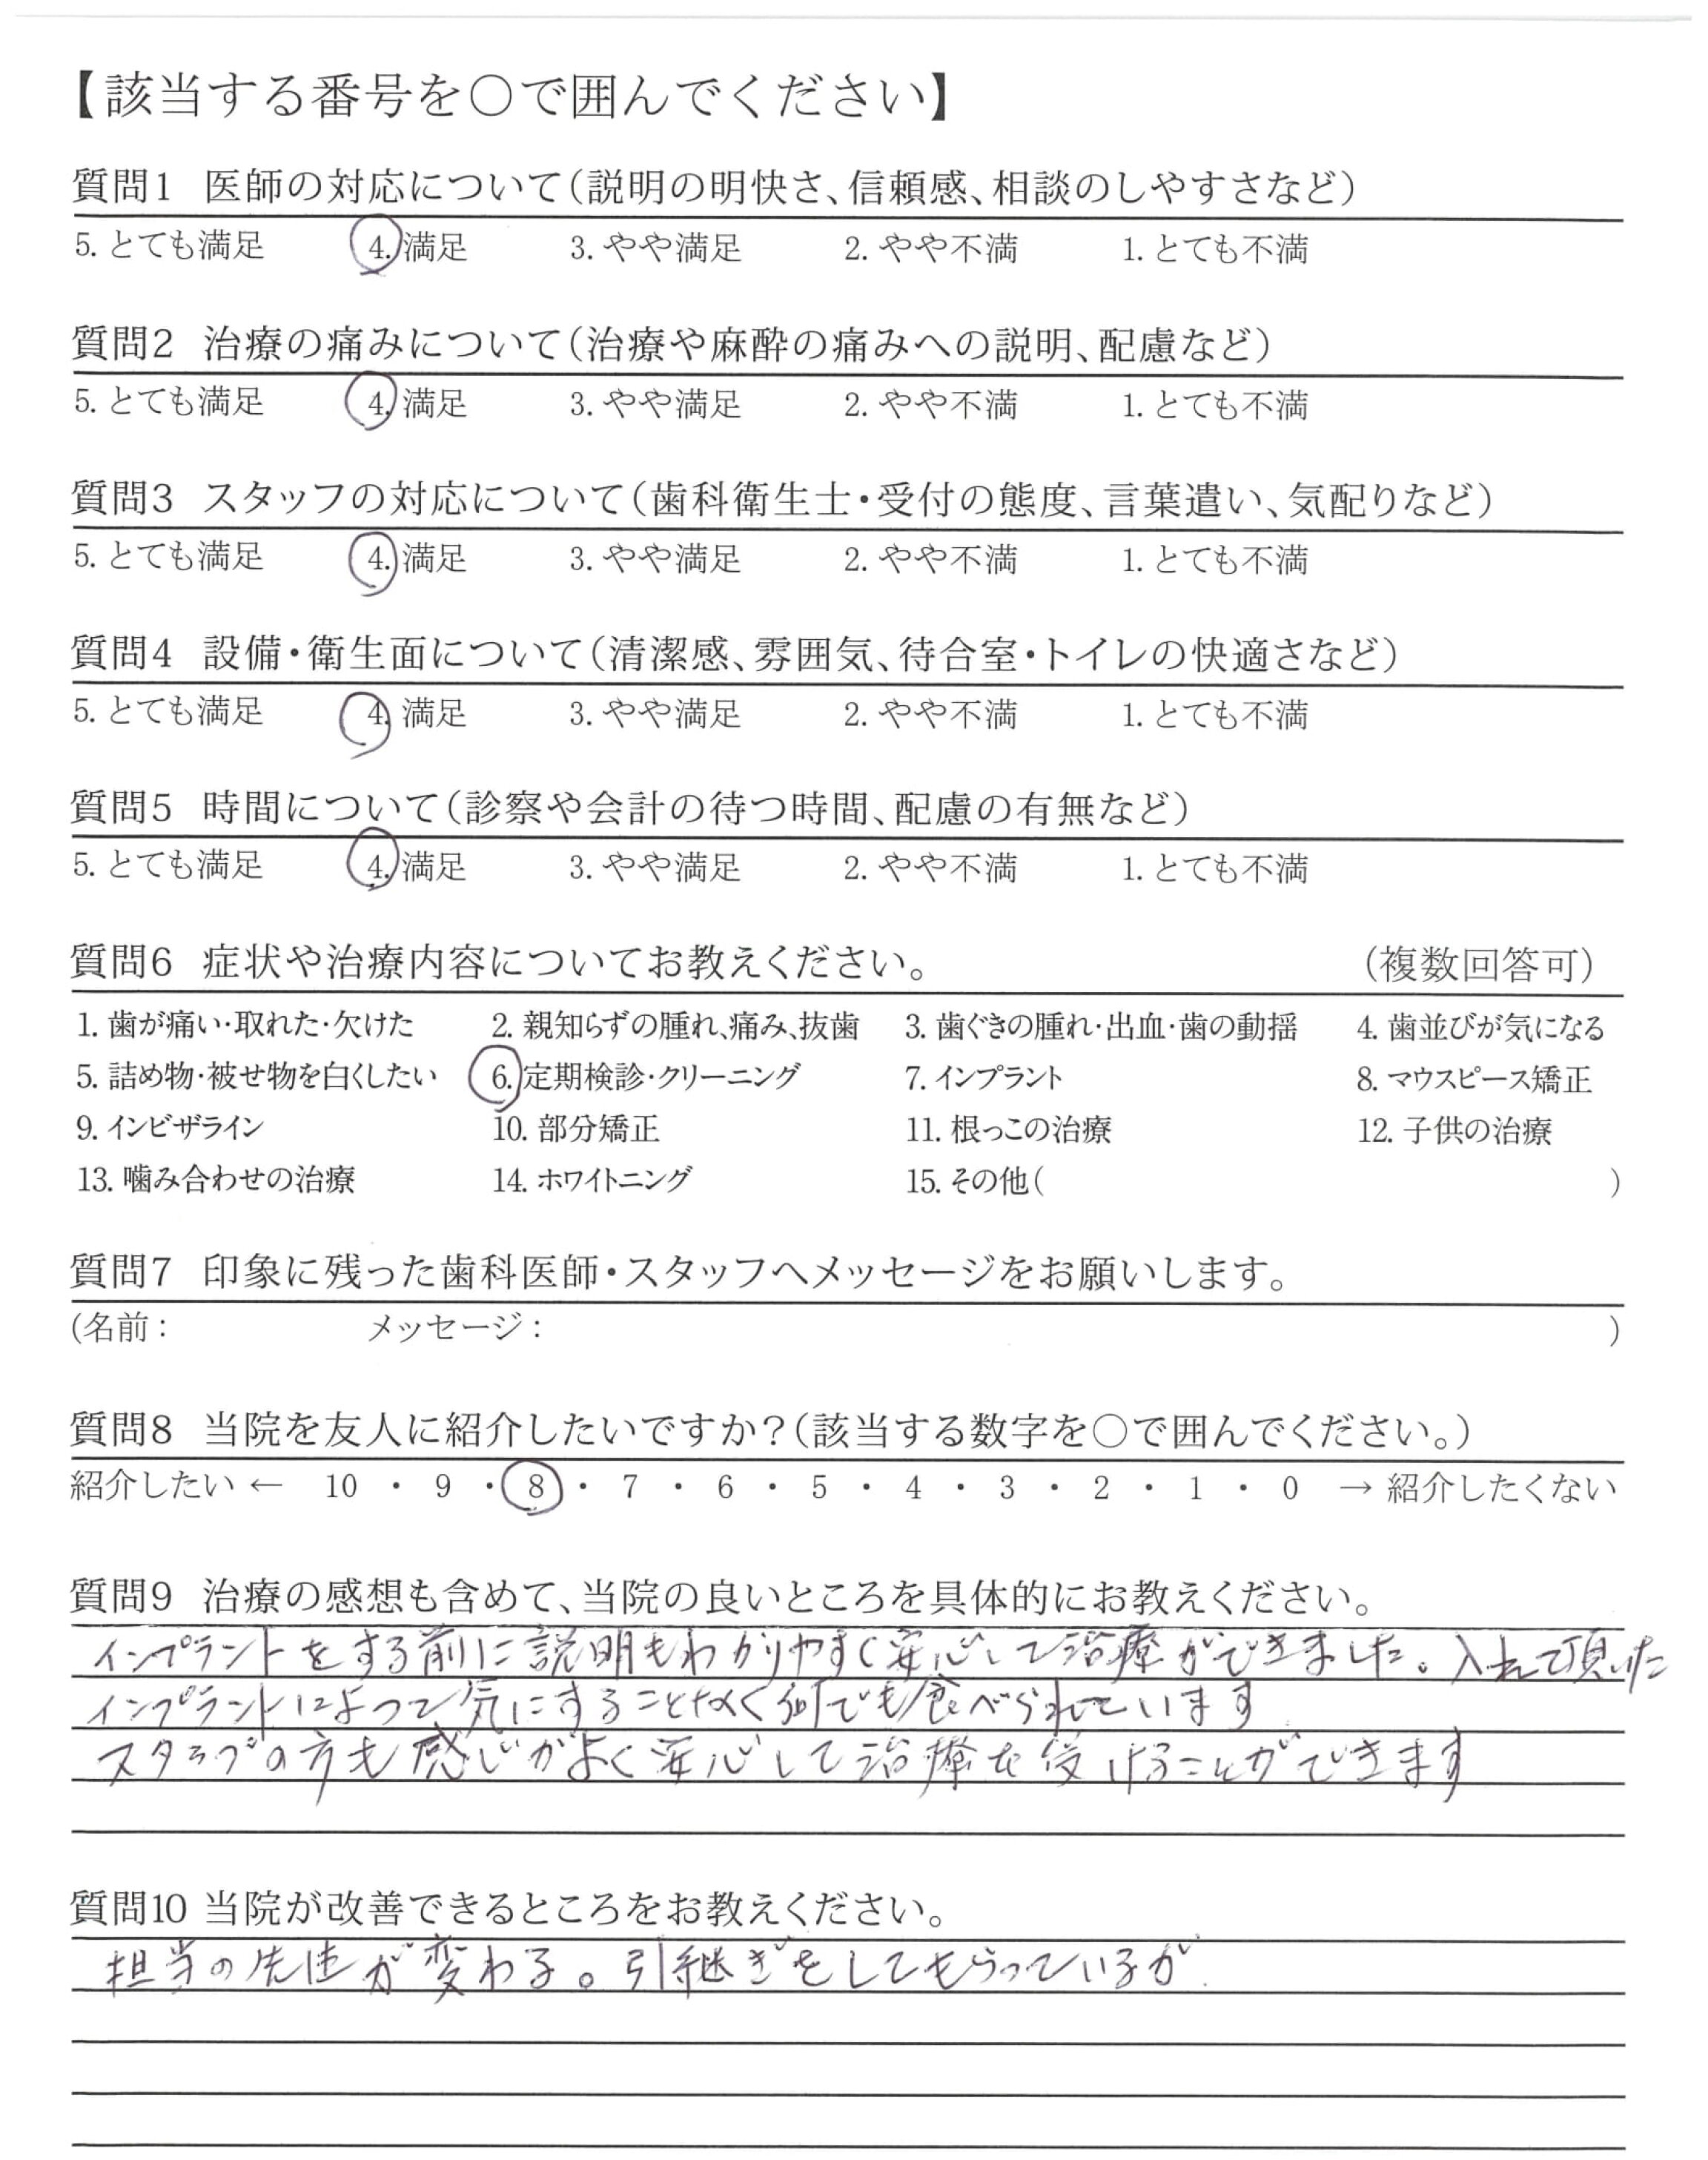 【該当する番号を○で囲んでください】
質問1 医師の対応について(説明の明快さ、信頼感、相談のしやすさなど)
5. とても満足 4. 満足 3. やや満足 2. やや不満 1. とても不満
質問2 治療の痛みについて(治療や麻酔の痛みへの説明、配慮など)
5. とても満足 4. 満足 3. やや満足 2. やや不満 1. とても不満
質問3 スタッフの対応について(歯科衛生士・受付の態度、言葉遣い、気配りなど)
5. とても満足 4. 満足 3. やや満足 2. やや不満 1. とても不満
質問4 設備・衛生面について(清潔感、雰囲気、待合室・トイレの快適さなど)
5. とても満足 4. 満足 3. やや満足 2. やや不満 1. とても不満
質問5 時間について(診察や会計の待つ時間、配慮の有無など)
5. とても満足 4. 満足 3. やや満足 2. やや不満 1. とても不満
質問6 症状や治療内容についてお教えください。 (複数回答可)
1. 歯が痛い・取れた・欠けた 2. 親知らずの腫れ、痛み、抜歯 3. 歯ぐきの腫れ・出血・歯の動揺 4. 歯並びが気になる
5. 詰め物・被せ物を白くしたい 6. 定期検診・クリーニング 7. インプラント 8. マウスピース矯正
9. インビザライン 10. 部分矯正 11. 根っこの治療 12. 子供の治療
13. 噛み合わせの治療 14. ホワイトニング 15. その他( )
質問7 印象に残った歯科医師・スタッフへメッセージをお願いします。
(名前: メッセージ: )
質問8 当院を友人に紹介したいですか?(該当する数字を○で囲んでください。)
紹介したい ← 10 ・ 9 ・ 8 ・ 7 ・ 6 ・ 5 ・ 4 ・ 3 ・ 2 ・ 1 ・ 0 → 紹介したくない
質問9 治療の感想も含めて、当院の良いところを具体的にお教えください。
インプラントをする前に説明もわかりやすく安心して治療ができました。入れて頂いた
インプラントによって気にすることなく何でも食べられています
スタッフの方も感じがよく安心して治療を受けることができます
質問10 当院が改善できるところをお教えください。
担当の先生が変わる。引継ぎをしてもらっているが